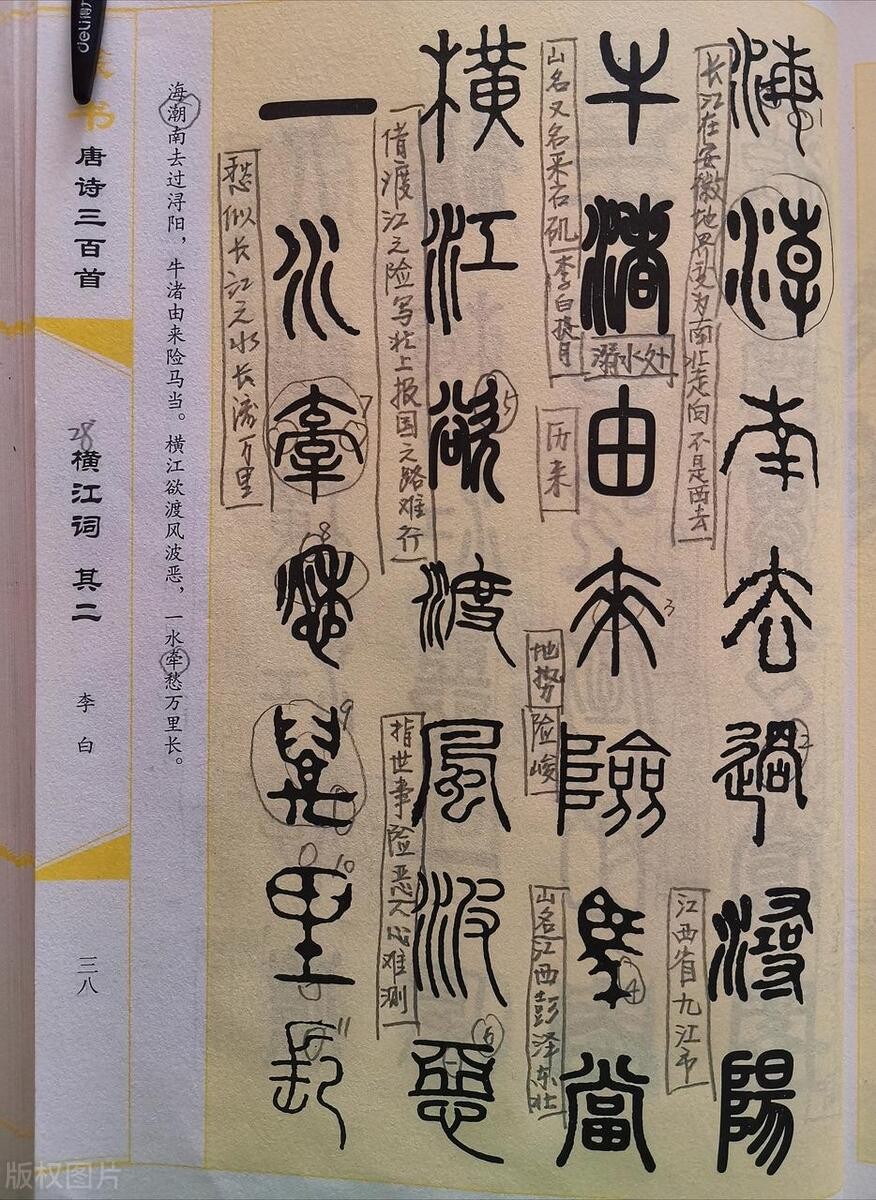 海潮南去過潯陽
长江在安徽地界变为南北走向不是西去
江西省九江市
牛渚由来險馬當
山名又名采石矶李白捞月
溺水处
历来
地势险峻
山名江西彭泽东北
橫江欲渡風波惡
借渡江之险写北上报国之路难行
指世事险恶人心难测
一水牽愁萬里長
愁似长江之水长流万里
海潮南去过浔阳，牛渚由来险马当。横江欲渡风波恶，一水牵愁万里长。
书
唐诗三百首
28
横江词 其二
李白
三八
deli
版权图片